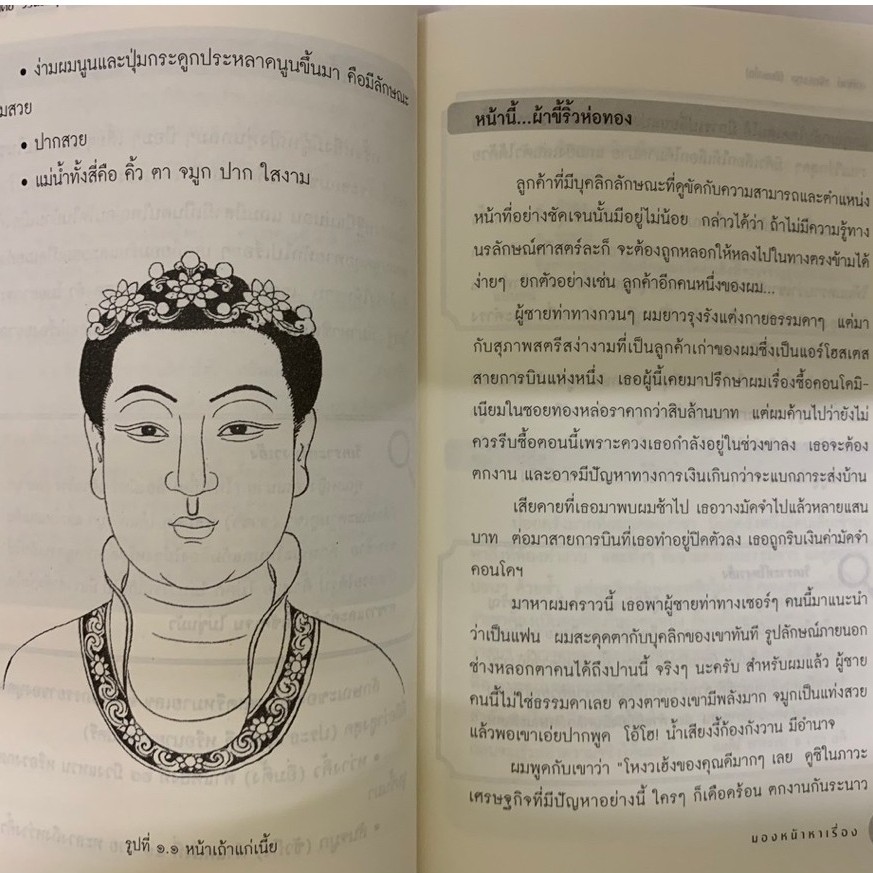 • ง่ามผมนูนและปุ่มกระดูกประหลาดนูนขึ้นมา คือมีลักษณะ
มสวย
• ปากสวย
• แม่น้ำทั้งสี่คือ คิ้ว ตา จมูก ปาก ใสงาม
รูปที่ ๑.๑ หน้าเถ้าแก่เนี้ย
หน้านี้...ผ้าขี้ริ้วห่อทอง
ลูกค้าที่มีบุคลิกลักษณะที่ดูขัดกับความสามารถและตำแหน่ง
หน้าที่อย่างชัดเจนนั้นมีอยู่ไม่น้อย กล่าวได้ว่า ถ้าไม่มีความรู้ทาง
นรลักษณ์ศาสตร์ละก็ จะต้องถูกหลอกให้หลงไปในทางตรงข้ามได้
ง่ายๆ ยกตัวอย่างเช่น ลูกค้าอีกคนหนึ่งของผม...
ผู้ชายท่าทางกวนๆ ผมยาวรุงรังแต่งกายธรรมดาๆ แต่มา
กับสุภาพสตรีสง่างามที่เป็นลูกค้าเก่าของผมซึ่งเป็นแอร์โฮสเตส
สายการบินแห่งหนึ่ง เธอผู้นี้เคยมาปรึกษาผมเรื่องซื้อคอนโดมิ-
เนียมในซอยทองหล่อราคากว่าสิบล้านบาท แต่ผมค้านไปว่ายังไม่
ควรรีบซื้อตอนนี้เพราะดวงเธอกำลังอยู่ในช่วงขาลง เธอจะต้อง
ตกงาน และอาจมีปัญหาทางการเงินเกินกว่าจะแบกภาระส่งบ้าน
เสียดายที่เธอมาพบผมช้าไป เธอวางมัดจำไปแล้วหลายแสน
บาท ต่อมาสายการบินที่เธอทำอยู่ปิดตัวลง เธอถูกริบเงินค่ามัดจำ
คอนโดฯ
มาหาผมคราวนี้ เธอพาผู้ชายท่าทางเซอร์ๆ คนนี้มาแนะนำ
ว่าเป็นแฟน ผมสะดุดตากับบุคลิกของเขาทันที รูปลักษณ์ภายนอก
ช่างหลอกตาคนได้ถึงปานนี้ จริงๆ นะครับ สำหรับผมแล้ว ผู้ชาย
คนนี้ไม่ใช่ธรรมดาเลย ดวงตาของเขามีพลังมาก จมูกเป็นแท่งสวย
แล้วพอเขาเอ่ยปากพูด โอ้โฮ! น้ำเสียงงี้ก้องกังวาน มีอำนาจ
ผมพูดกับเขาว่า "โหงวเฮ้งของคุณดีมากๆ เลย ดูซิในภาวะ
เศรษฐกิจที่มีปัญหาอย่างนี้ ใครๆ ก็เดือดร้อน ตกงานกันระนาว
มองหน้าหาเรื่อง